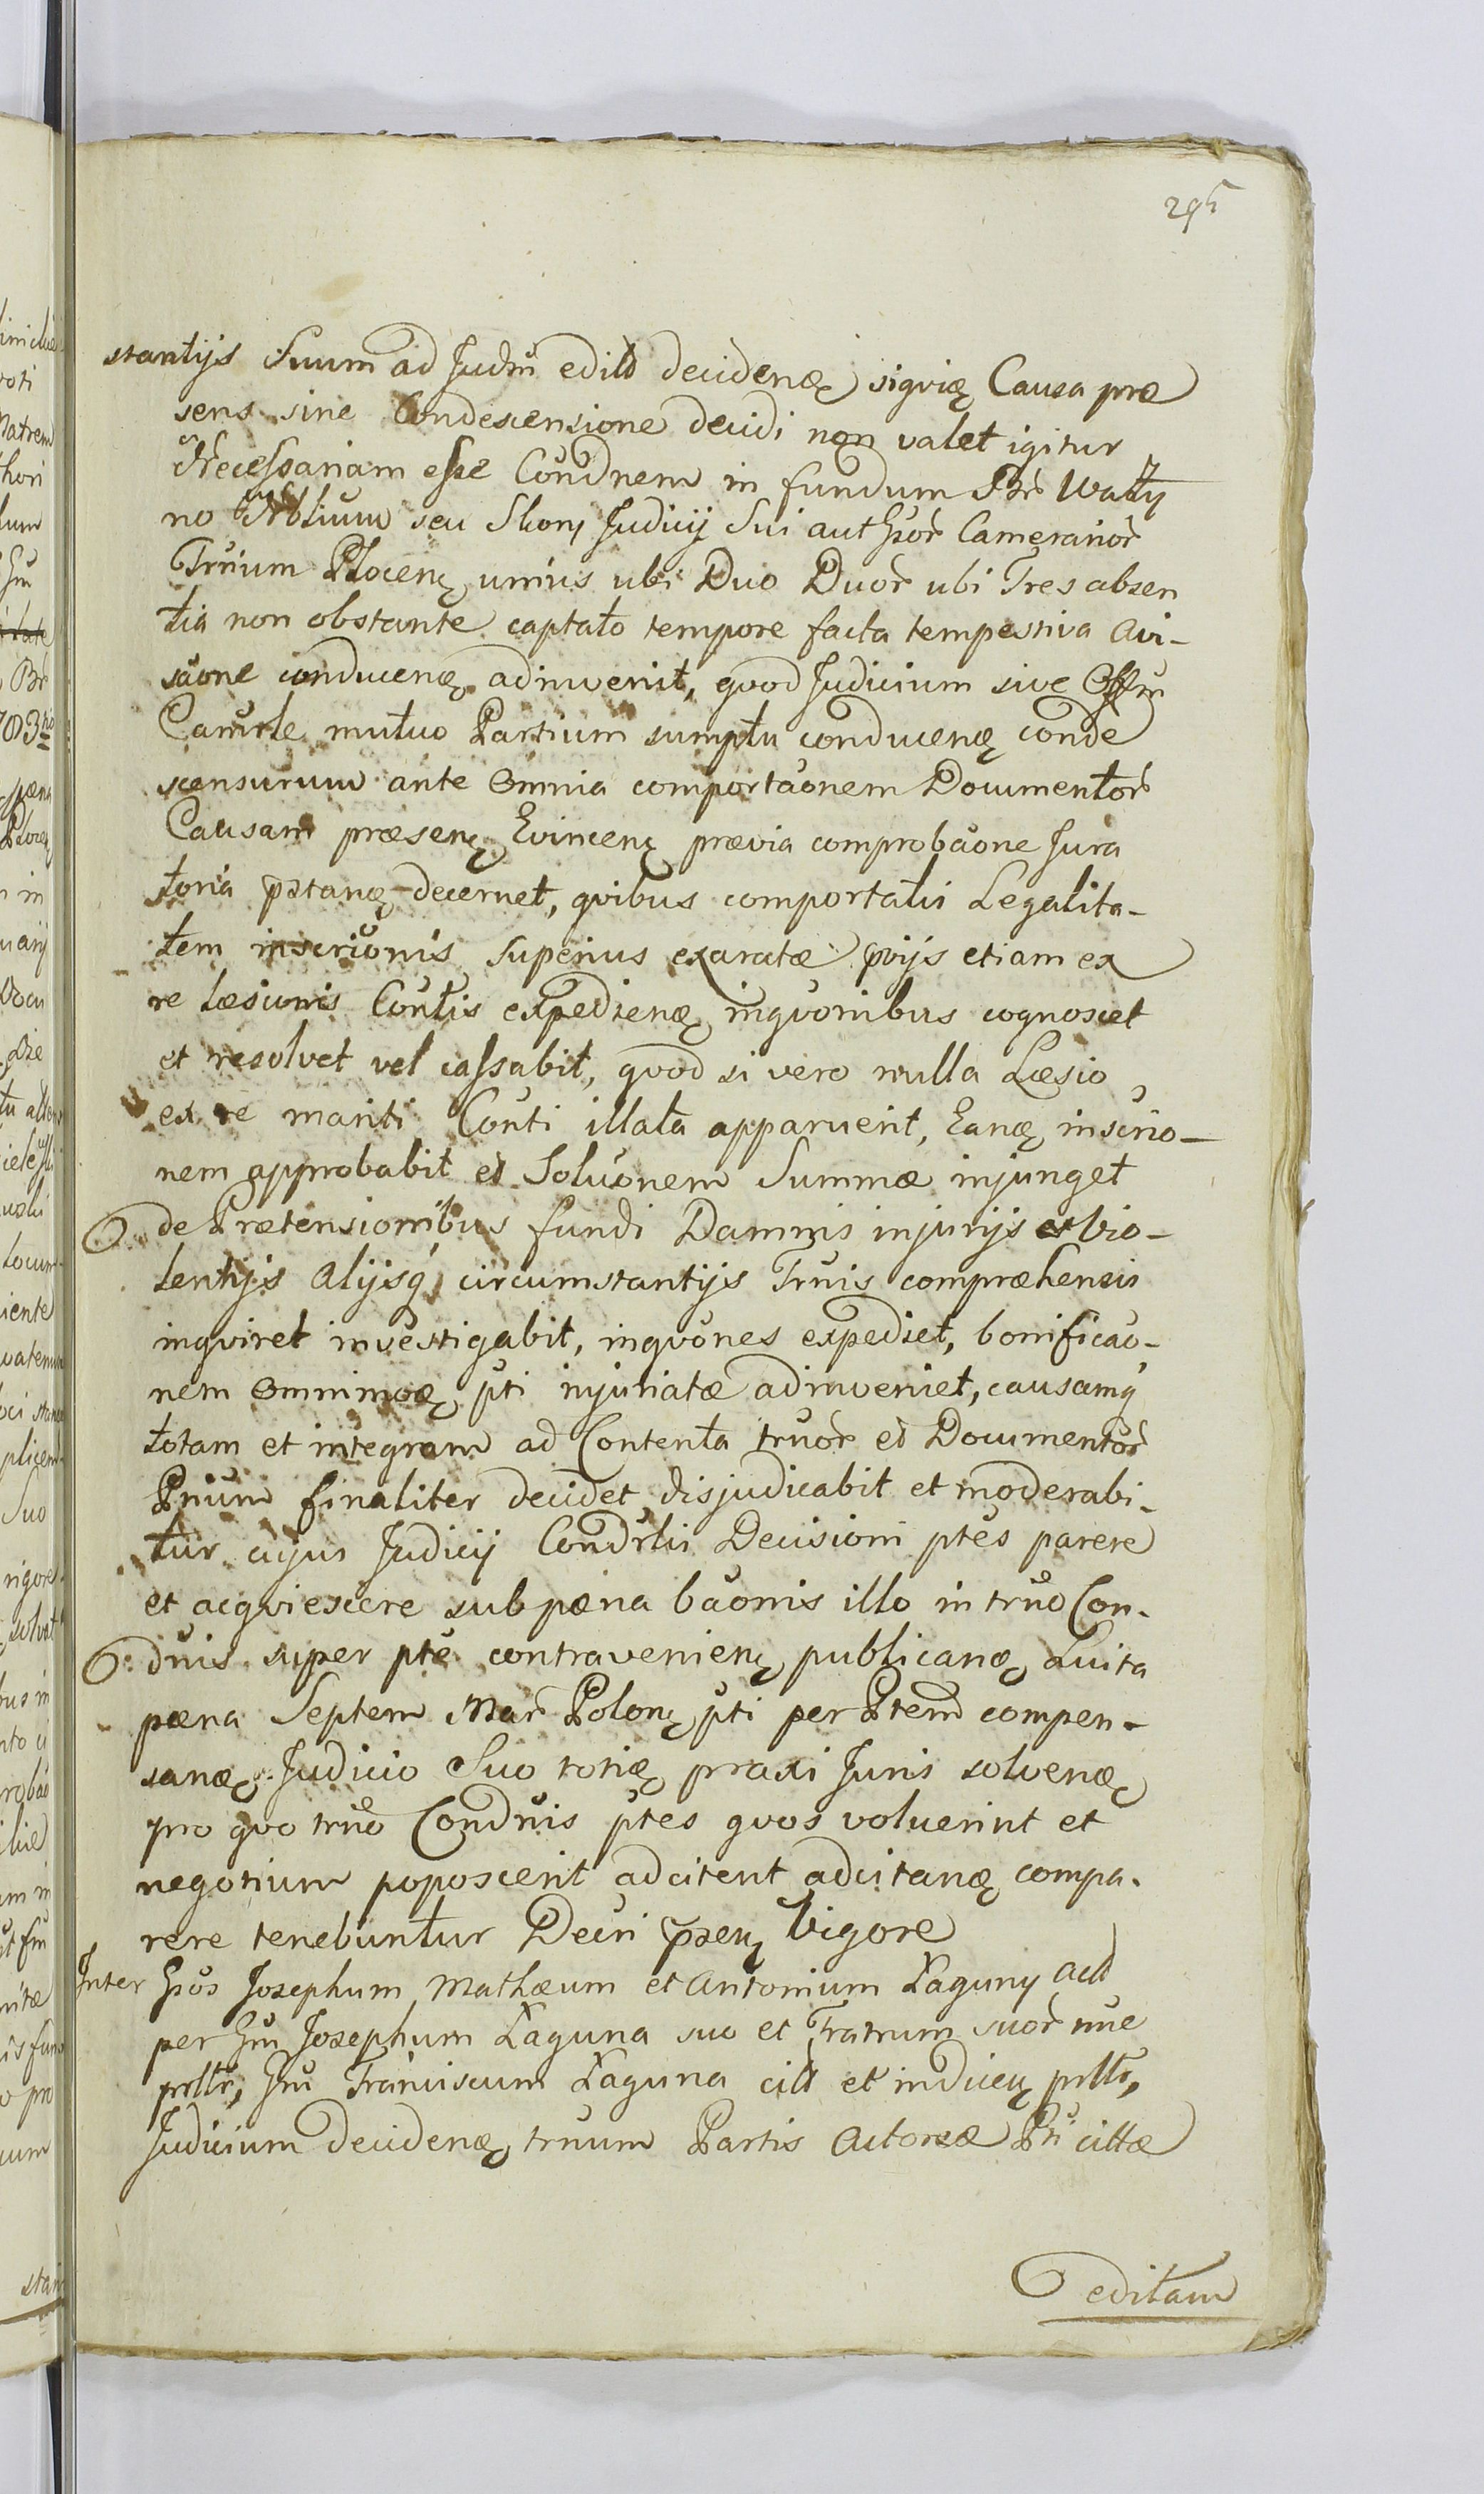 295
stantijs Suum ad Judm edito decidenđ siqvid Causa præ
sens sine Condescensione decidi non valet igitur
Necessariam esse Condnem in fundum Br Wały
no Nobilium seu Skory Judicij Sui aut Gsor Camerarior
Trrium Plocen unius ubi Duo Duor ubi Tres absen
tia non obstante captato tempore facta tempestiva Avi-
saone conducend adinvenit, qvod Judicium sive Offm
Camrle mutuo Partium sumptu conducend conde
scensurum ante Omnia comportaonem Documentor
Causam præsen Evincen prævia comprobaone Jura
toria pstand decernet, qvibus comportatis Legalita-
tem inscrionis superius exaratæ pvijs etiam ex
re læsionis Contis expediend inqvonibus cognoscet
et resolvet vel cassabit, qvod si vero nulla Læsio
ex re mariti Conti illata apparuerit, Eand inscrio-
nem approbabit et Soluonem Summæ injunget
de Prætensionibus fundi Damnis injurijs et vio-
lentijs Alijsq circumstantijs Trris compræhensis
inqviret investigabit, inqvones expediet, bonificao-
nem Omnimod pti injuriatæ adinveniet, causamq
totam et integram ad Contenta truor et Documentor
Prium finaliter decidet disjudicabit et moderabi-
tur cujus Judicij Condrlis Decisioni ptes parere
et acqviescere sub pæna baonis illo in trno Con-
dnis super pte contravenien publicand Luita
pæna Septem Mar Polon pti per Ptem compen-
sand Judicio Suo totid praxi Juris solvend
pro qvo trno Condnis ptes qvos voluerint et
negotium poposcerit adcitent adcitand compa-
rere tenebuntur Decri psen Vigore
Inter Gsos Josephum Mathæum et Antonium Łaguny Acto
per Gm Josephum Łaguna suo et Fratrum suor nne
prltr, Gm Franciscum Łaguna cito et indicen prltr,
Judicium decidend trnum Partis Actoreæ Pti cittæ
editam